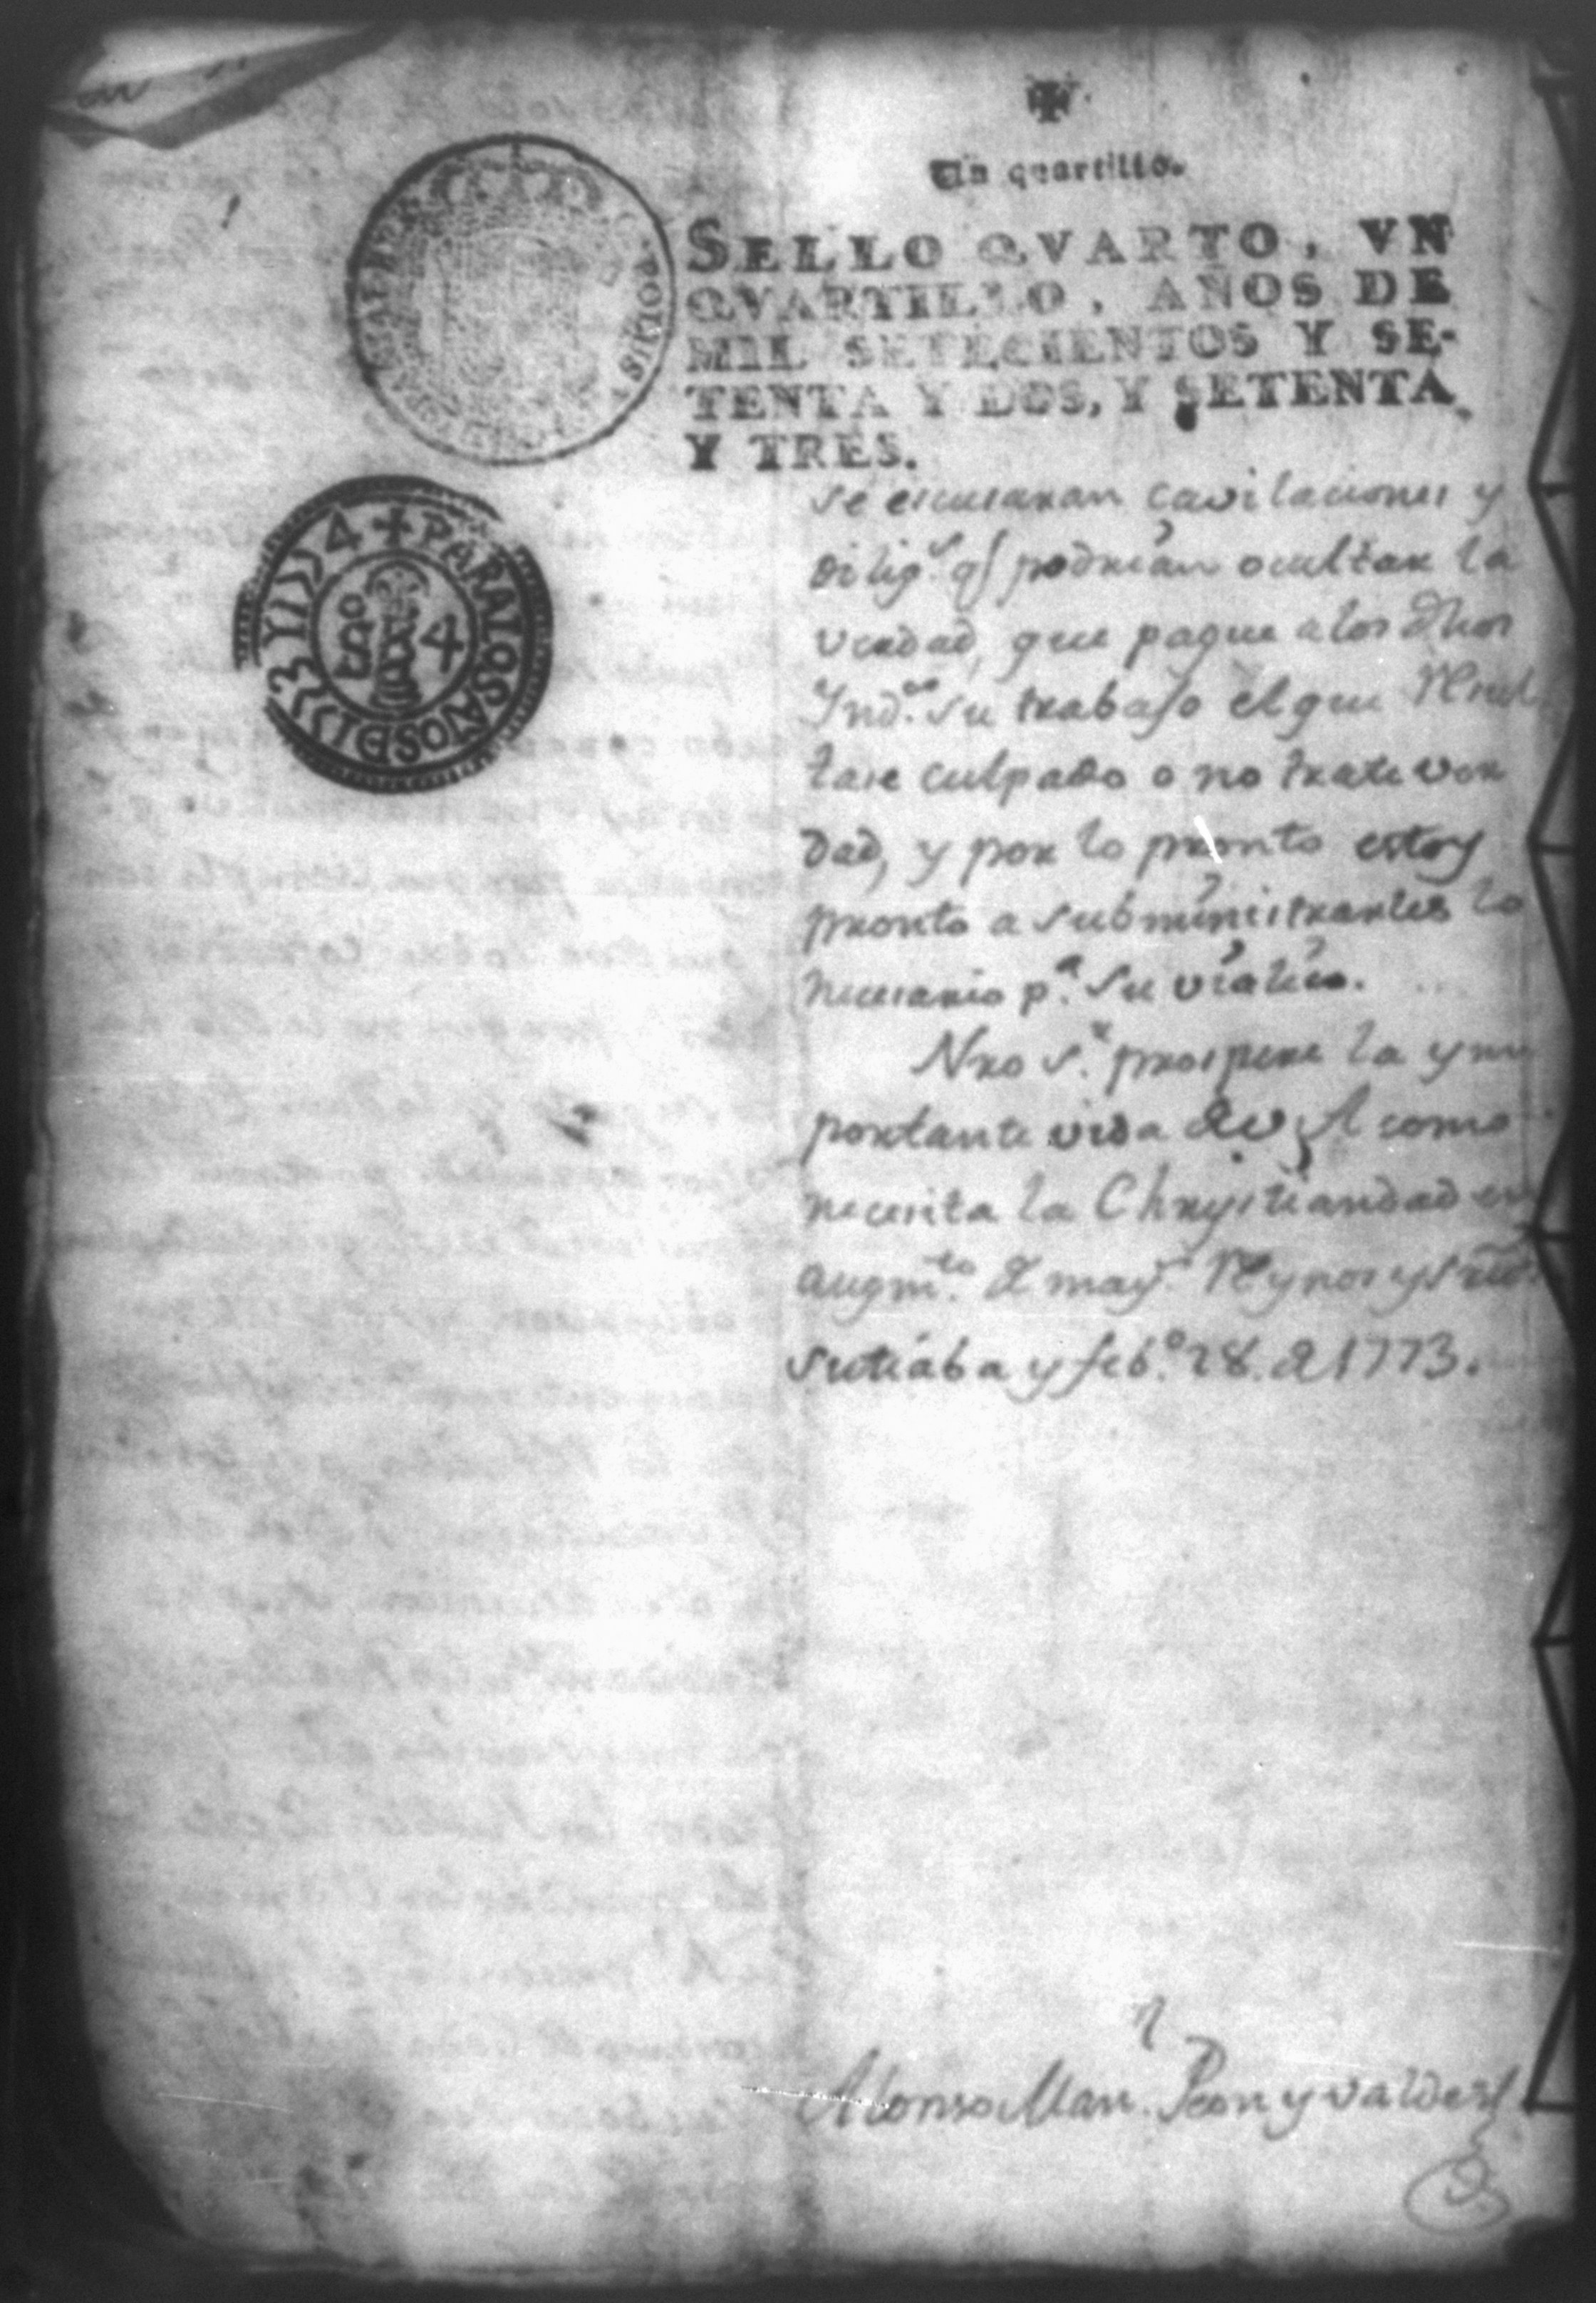 Un quartillo.
SELLO QVARTO, VN
QVARTILLO, AÑOS DE
MIL SETECIENTOS Y SE-
TENTA Y DOS, Y SETENTA
Y TRES.
+ PARA LOS AÑOS DE
S.º 4
se escusaran cavilaciones y
dilig.s q podrian ocultar la
verdad, que pague a los dhos
Ynd.os su trabajo el que Resul
tase culpado o no trate ver
dad, y por lo pronto estoy
pronto a subministrarles lo
necesario p.a su viatico.
Nro S.r prospere la ym
portante vida de V A como
necesita la Chrystiandad en
augm.to de may.s Reynos y
Sutiaba y feb.o 28. de 1773.
Alonso Man.l Peon y Valdes